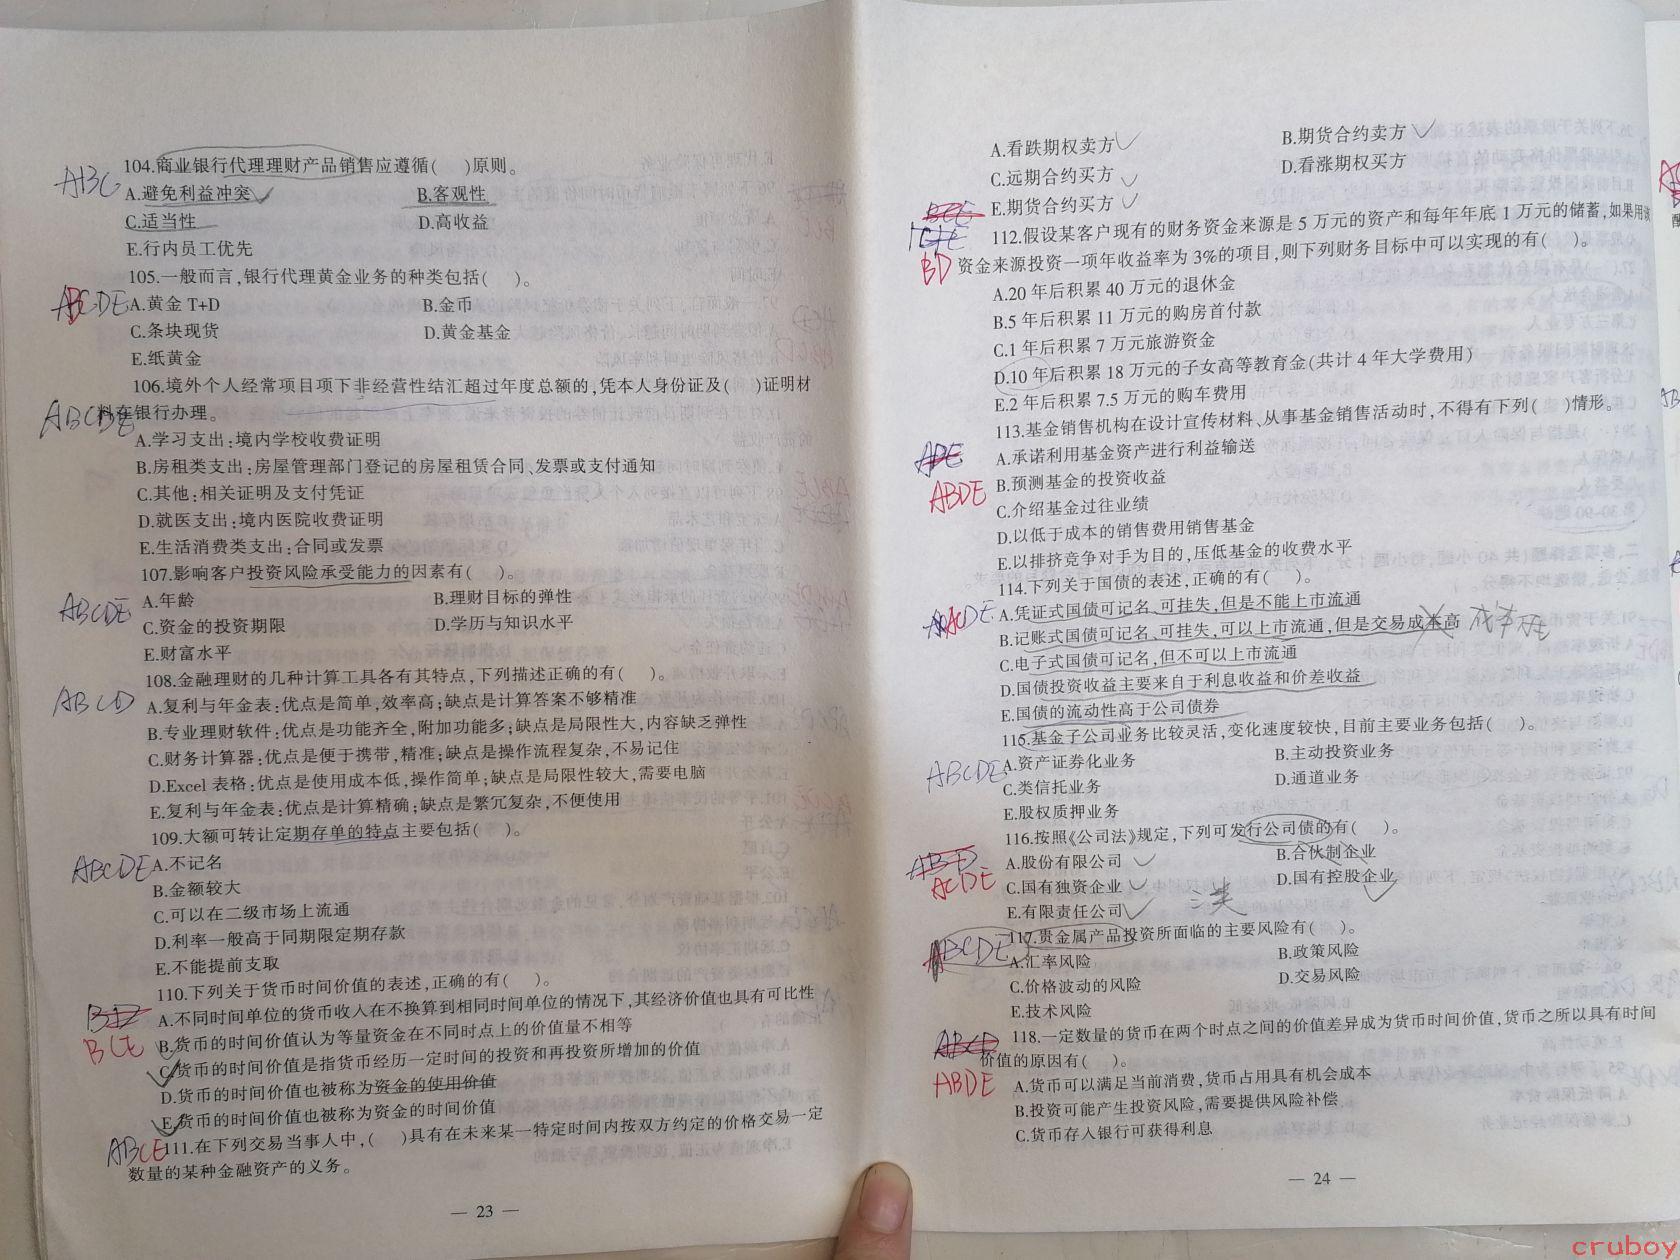 104.商业银行代理理财产品销售应遵循(　)原则。
ABC
A.避免利益冲突 B.客观性
C.适当性 D.高收益
E.行内员工优先
105.一般而言,银行代理黄金业务的种类包括(　)。
ABCDE
A.黄金 T+D B.金币
C.条块现货 D.黄金基金
E.纸黄金
106.境外个人经常项目项下非经营性结汇超过年度总额的,凭本人身份证及(　)证明材
料在银行办理。
ABCDE
A.学习支出:境内学校收费证明
B.房租类支出:房屋管理部门登记的房屋租赁合同、发票或支付通知
C.其他:相关证明及支付凭证
D.就医支出:境内医院收费证明
E.生活消费类支出:合同或发票
107.影响客户投资风险承受能力的因素有(　)。
ABCDE
A.年龄 B.理财目标的弹性
C.资金的投资期限 D.学历与知识水平
E.财富水平
108.金融理财的几种计算工具各有其特点,下列描述正确的有(　)。
ABCD
A.复利与年金表:优点是简单,效率高;缺点是计算答案不够精准
B.专业理财软件:优点是功能齐全,附加功能多;缺点是局限性大,内容缺乏弹性
C.财务计算器:优点是便于携带,精准;缺点是操作流程复杂,不易记住
D.Excel 表格:优点是使用成本低,操作简单;缺点是局限性较大,需要电脑
E.复利与年金表:优点是计算精确;缺点是繁冗复杂,不便使用
109.大额可转让定期存单的特点主要包括(　)。
ABCDE
A.不记名
B.金额较大
C.可以在二级市场上流通
D.利率一般高于同期限定期存款
E.不能提前支取
110.下列关于货币时间价值的表述,正确的有(　)。
BCE
A.不同时间单位的货币收入在不换算到相同时间单位的情况下,其经济价值也具有可比性
B.货币的时间价值认为等量资金在不同时点上的价值量不相等
C.货币的时间价值是指货币经历一定时间的投资和再投资所增加的价值
D.货币的时间价值也被称为资金的使用价值
E.货币的时间价值也被称为资金的时间价值
ABCE
111.在下列交易当事人中,(　)具有在未来某一特定时间内按双方约定的价格交易一定
数量的某种金融资产的义务。
— 23 —
A.看跌期权卖方 B.期货合约卖方
C.远期合约买方 D.看涨期权买方
E.期货合约买方
112.假设某客户现有的财务资金来源是 5 万元的资产和每年年底 1 万元的储蓄,如果用该
资金来源投资一项年收益率为 3%的项目,则下列财务目标中可以实现的有(　)。
BD
A.20 年后积累 40 万元的退休金
B.5 年后积累 11 万元的购房首付款
C.1 年后积累 7 万元旅游资金
D.10 年后积累 18 万元的子女高等教育金(共计 4 年大学费用)
E.2 年后积累 7.5 万元的购车费用
113.基金销售机构在设计宣传材料、从事基金销售活动时,不得有下列(　)情形。
ADE
ABDE
A.承诺利用基金资产进行利益输送
B.预测基金的投资收益
C.介绍基金过往业绩
D.以低于成本的销售费用销售基金
E.以排挤竞争对手为目的,压低基金的收费水平
114.下列关于国债的表述,正确的有(　)。
ACDE
A.凭证式国债可记名、可挂失,但是不能上市流通
B.记账式国债可记名、可挂失,可以上市流通,但是交易成本高 成本低
C.电子式国债可记名,但不可以上市流通
D.国债投资收益主要来自于利息收益和价差收益
E.国债的流动性高于公司债券
115.基金子公司业务比较灵活,变化速度较快,目前主要业务包括(　)。
ABCDE
A.资产证券化业务 B.主动投资业务
C.类信托业务 D.通道业务
E.股权质押业务
116.按照《公司法》规定,下列可发行公司债的有(　)。
ACDE
A.股份有限公司 B.合伙制企业
C.国有独资企业 D.国有控股企业
E.有限责任公司
117.贵金属产品投资所面临的主要风险有(　)。
ABCDE
A.汇率风险 B.政策风险
C.价格波动的风险 D.交易风险
E.技术风险
118.一定数量的货币在两个时点之间的价值差异成为货币时间价值,货币之所以具有时间
价值的原因有(　)。
ABCD
ABDE
A.货币可以满足当前消费,货币占用具有机会成本
B.投资可能产生投资风险,需要提供风险补偿
C.货币存入银行可获得利息
— 24 —
cruboy